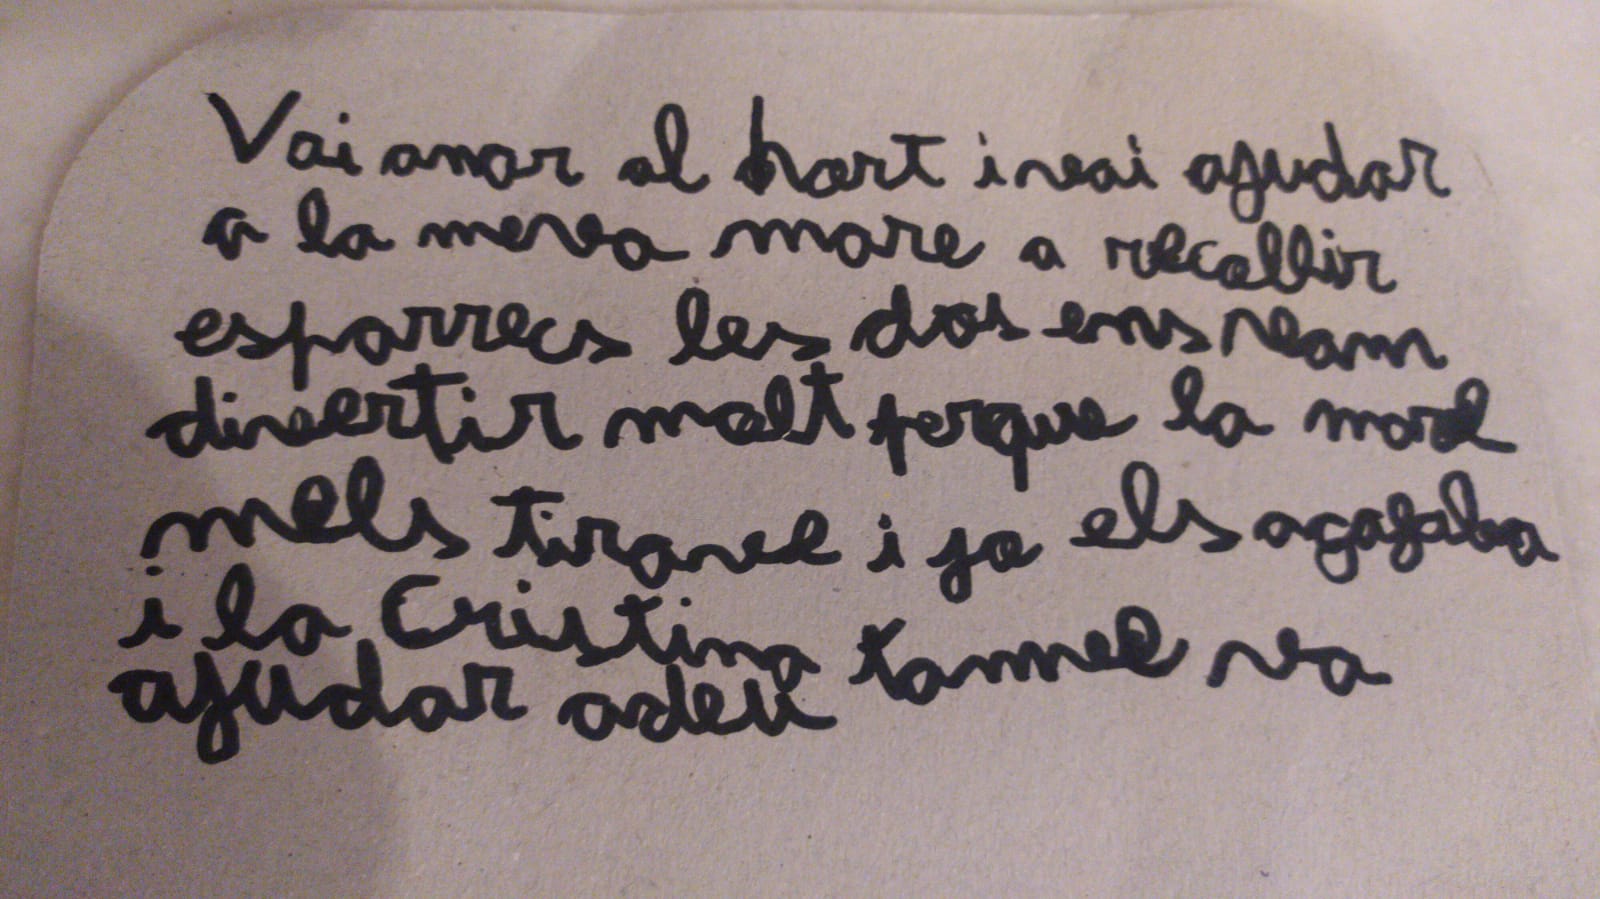 Vai anar al hort i vai ajudar
a la meva mare a recollir
esparrecs les dos ens vam
divertir molt perque la mare
mels tirave i jo els agafaba
i la Cristina tanmee va
ajudar adeu